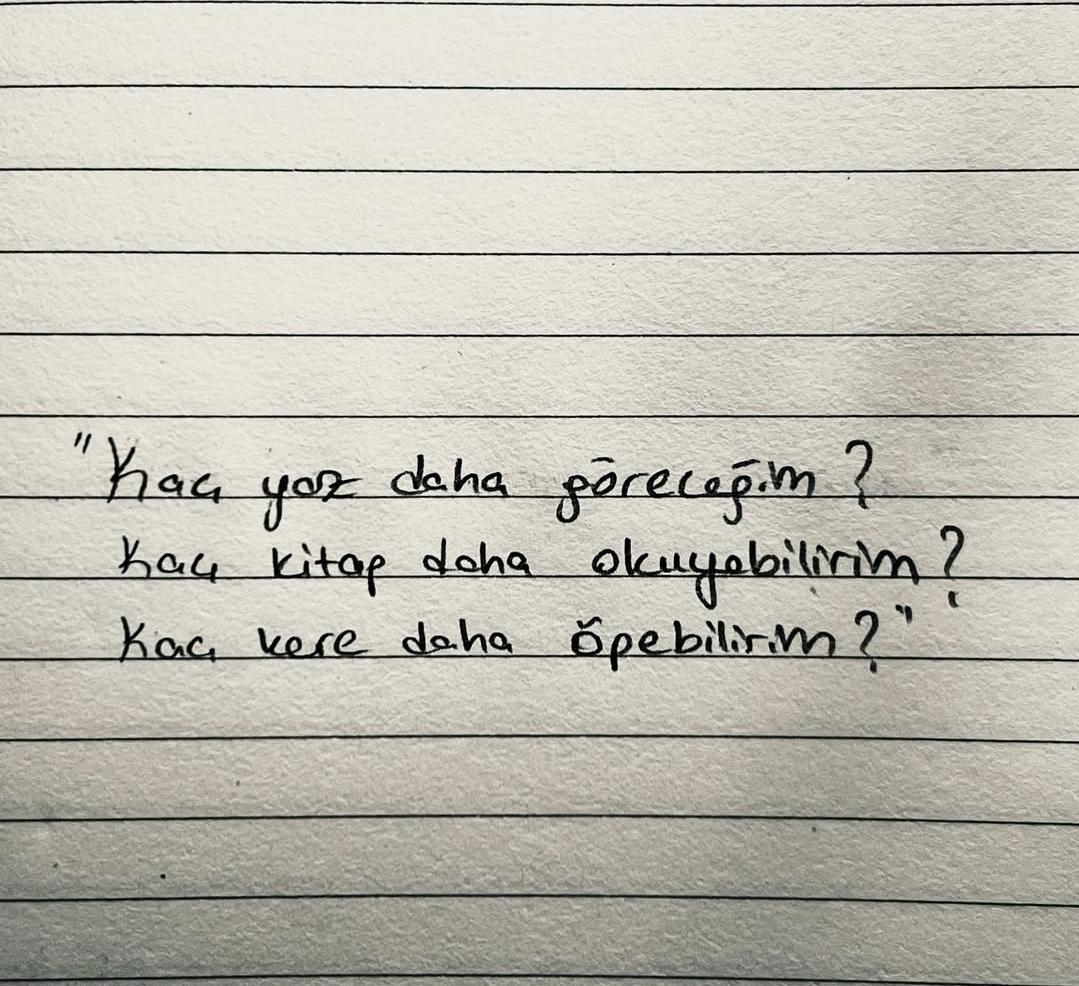 "Kaç yaz daha göreceğim?
Kaç kitap daha okuyabilirim?
Kaç kere daha öpebilirim?"